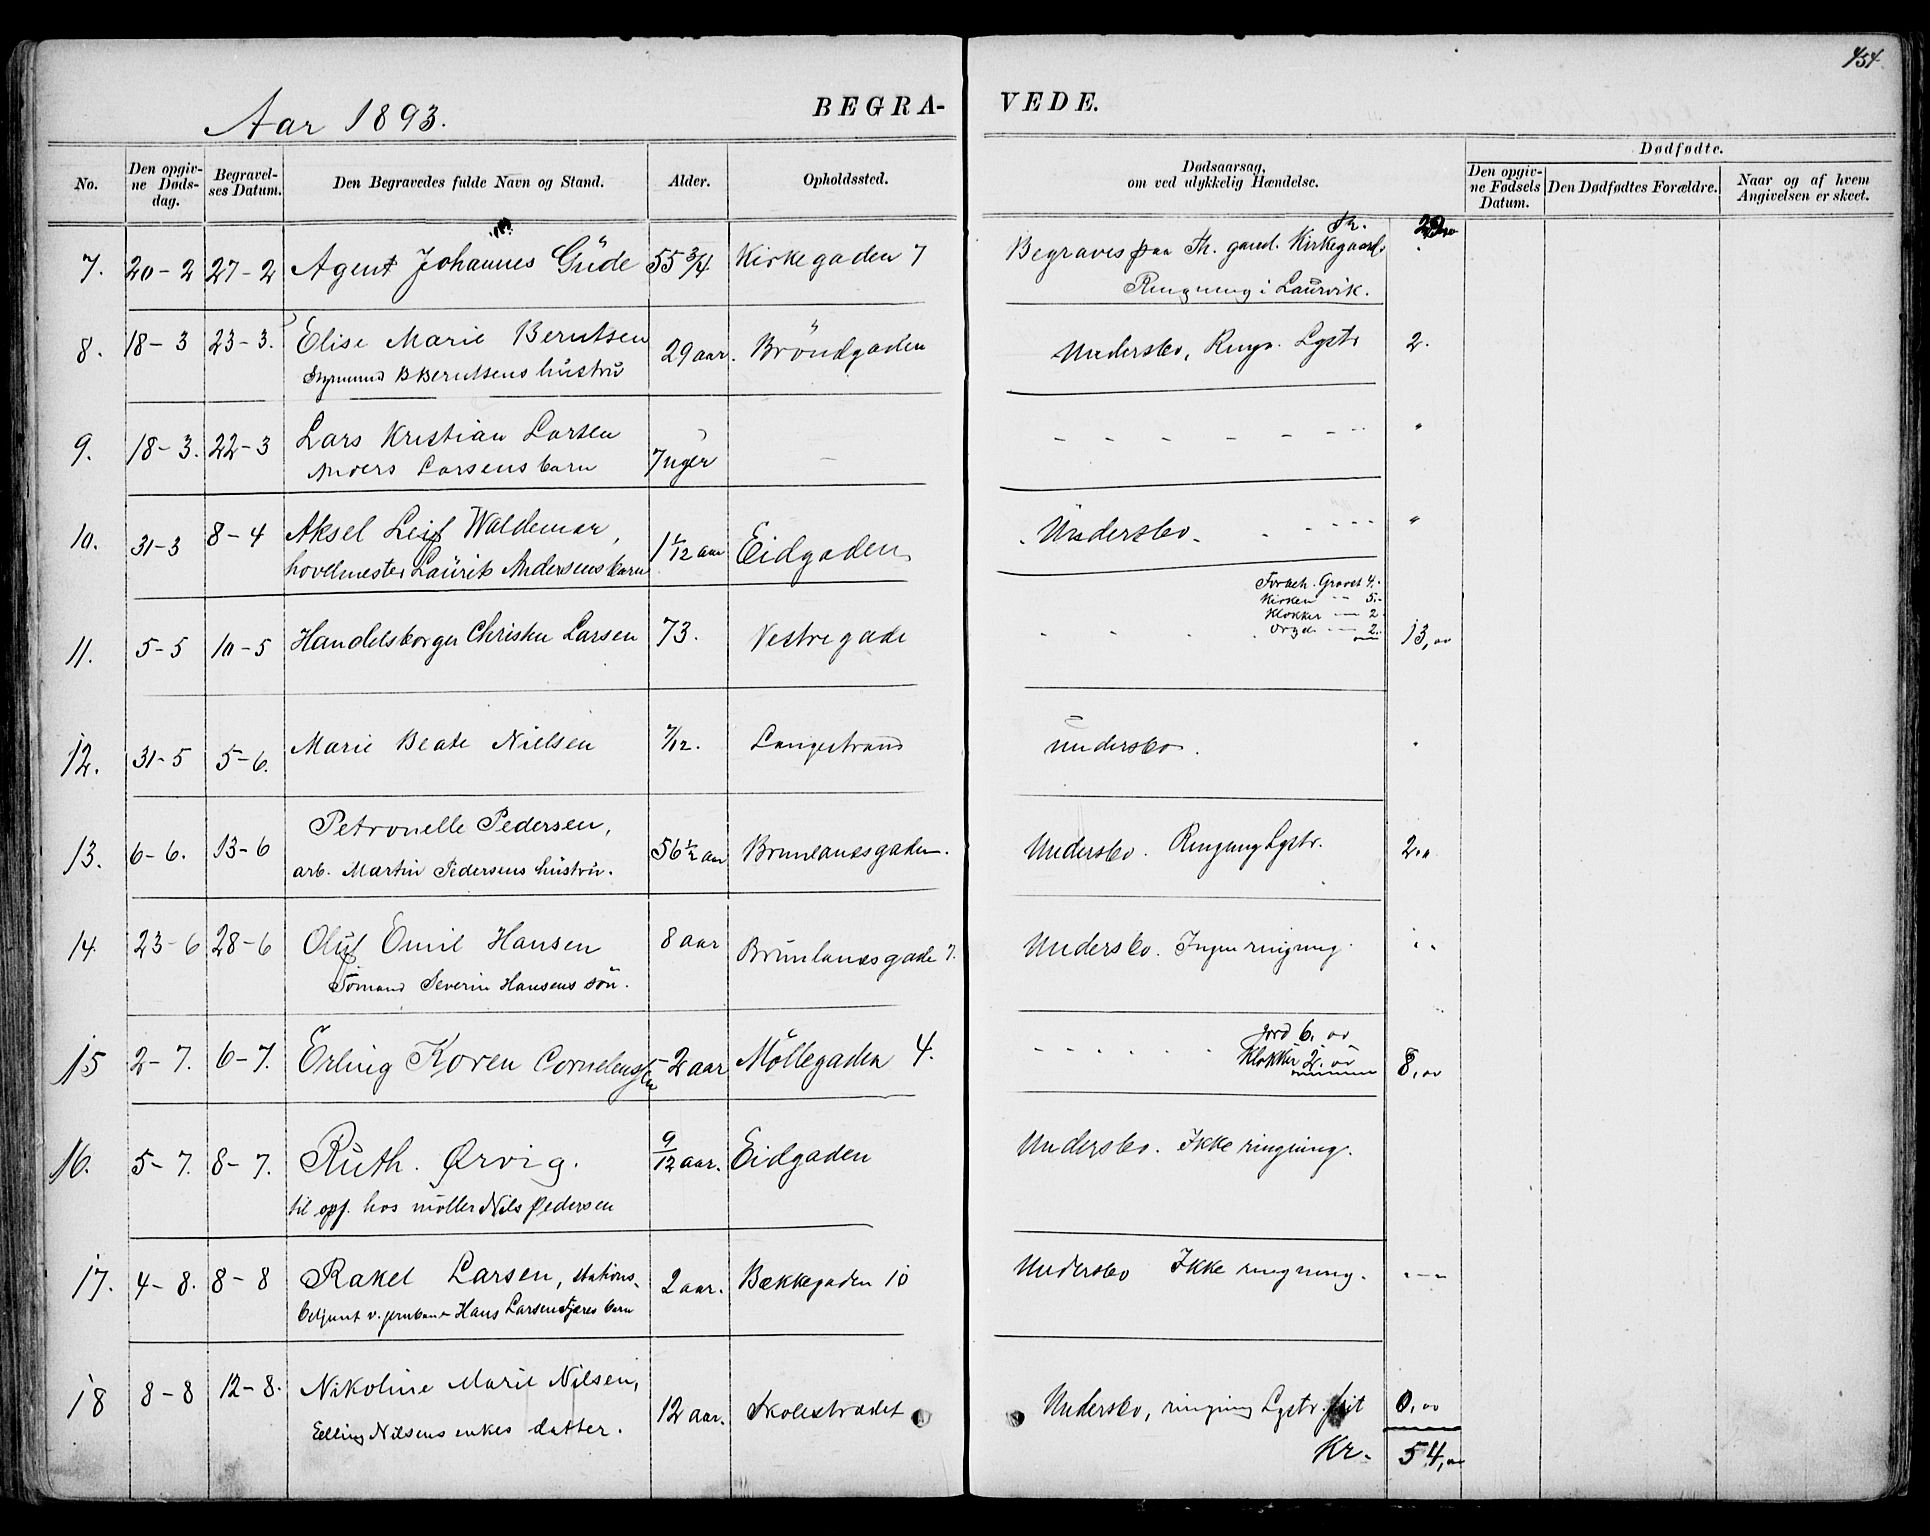 454.
Aar 1893.
BEGRA-
VEDE.
No.
Den opgiv-
ne Døds-
dag.
Begravel-
ses Datum.
Den Begravedes fulde Navn og Stand.
Alder.
Opholdssted.
Dødsaarsag,
om ved ulykkelig Hændelse.
Dødfødte.
Den opgiv-
ne Fødsels
Datum.
Den Dødfødtes Forældre.
Naar og af hvem
Angivelsen er skeet.
7. 20-2 27-2 Agent Johannes Gude 55 3/4 Kirkegaden 7 Begraves paa Th. gaml. Kirkegaard.
Ringning i Laurvik.
8. 18-3 23-3. Elise Marie Berntsen 29 aar. Bröndgaden Undersbo, Ringn. Lystr 2.
Styrmand B Berntsens hustru
9. 18-3. 22-3 Lars Kristian Larsen 7 uger - - - - - - - "
Anders Larsens barn
10. 31-3 8-4 Aksel Leif Waldemar, 1 1/12 aar Eidgaden Undersbo. - - - - "
hovelmester Laurits Andersens barn
Kirken - 5.-
Klokker - 2
Orgel - 2.
11. 5-5 10-5 Handelsborger Christen Larsen 73. Vestregade 13,00
12. 31-5 5-6. Marie Beate Nielsen 7/12. Langestrand undersbo.
13. 6-6. 13-6 Petronelle Pedersen, 56 1/2 aar Brunlanesgaden. Undersbo. Ringning Lystr. 2.
arb. Martin Pedersens hustru.
14 23-6 28-6 Oluf Emil Hansen 8 aar Brunlanesgade 7. Undersbo. Ingen ringning.
Sömand Severin Hansens sön.
Jord 6. oo
15 2-7. 6-7. Erling Koren Cornelenssen 2 aar Möllegaden 4. - - - - - - Klokker 2. oo 8,oo
16. 5-7. 8-7. Ruth. Ørvig. 9/12 aar. Eidgaden Undersbo. Ikke ringning.
til opf. hos möller Nils Pedersen
17. 4-8. 8-8 Rakel Larsen, stations- 2 aar. Bækkegaden 10 Undersbo Ikke ringning. - - -
betjent v. jernbanen Hans Larsen barn
18 8-8 12-8. Nikoline Marie Nilsen, 12 aar. Skolestrædet Undersbo, ringning Lystr. frit 0,oo
Elling Nilsens enkes datter.
Kr. 54,oo